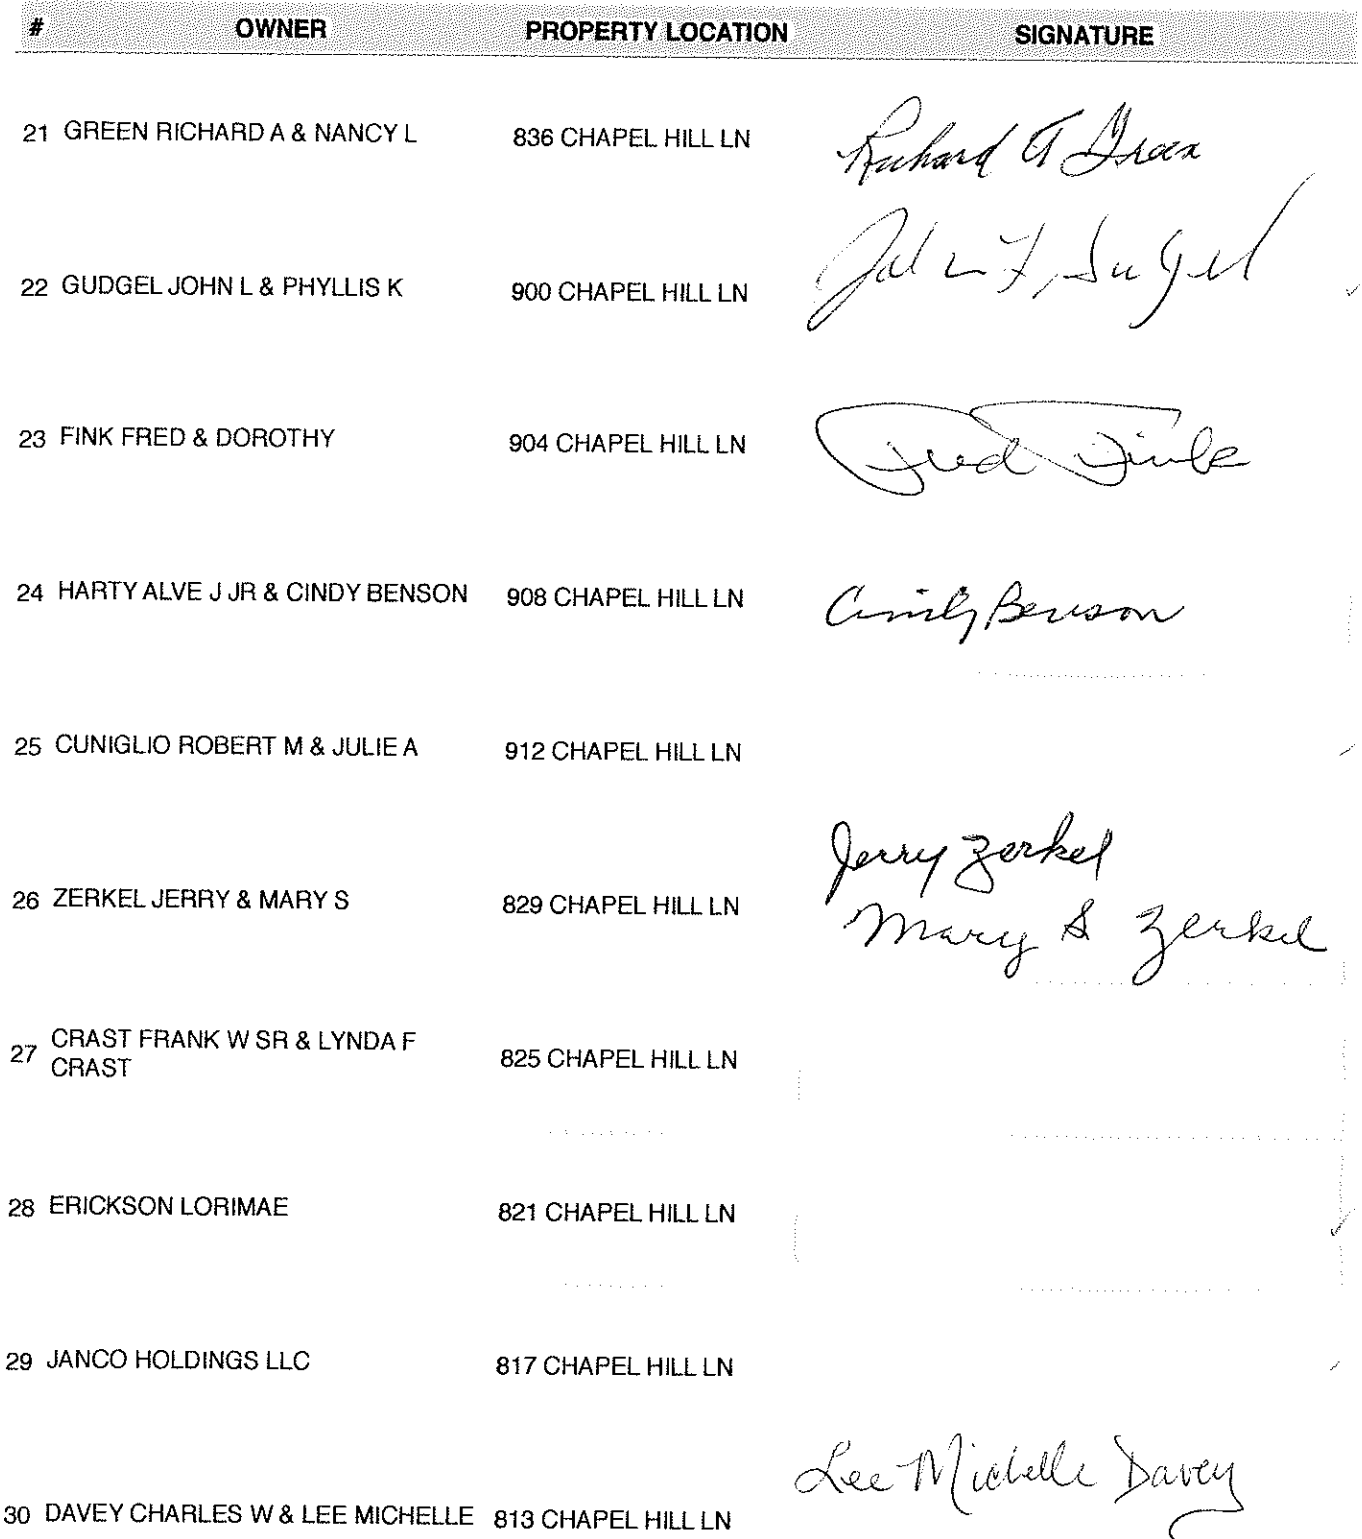 # OWNER PROPERTY LOCATION SIGNATURE
21 GREEN RICHARD A & NANCY L 836 CHAPEL HILL LN Richard A Green
22 GUDGEL JOHN L & PHYLLIS K 900 CHAPEL HILL LN John L Gudgel
23 FINK FRED & DOROTHY 904 CHAPEL HILL LN Fred Fink
24 HARTY ALVE J JR & CINDY BENSON 908 CHAPEL HILL LN Cindy Benson
25 CUNIGLIO ROBERT M & JULIE A 912 CHAPEL HILL LN
Jerry Zerkel
26 ZERKEL JERRY & MARY S 829 CHAPEL HILL LN
Mary S Zerkel
27 CRAST FRANK W SR & LYNDA F 825 CHAPEL HILL LN
CRAST
28 ERICKSON LORIMAE 821 CHAPEL HILL LN
29 JANCO HOLDINGS LLC 817 CHAPEL HILL LN
Lee Michelle Davey
30 DAVEY CHARLES W & LEE MICHELLE 813 CHAPEL HILL LN